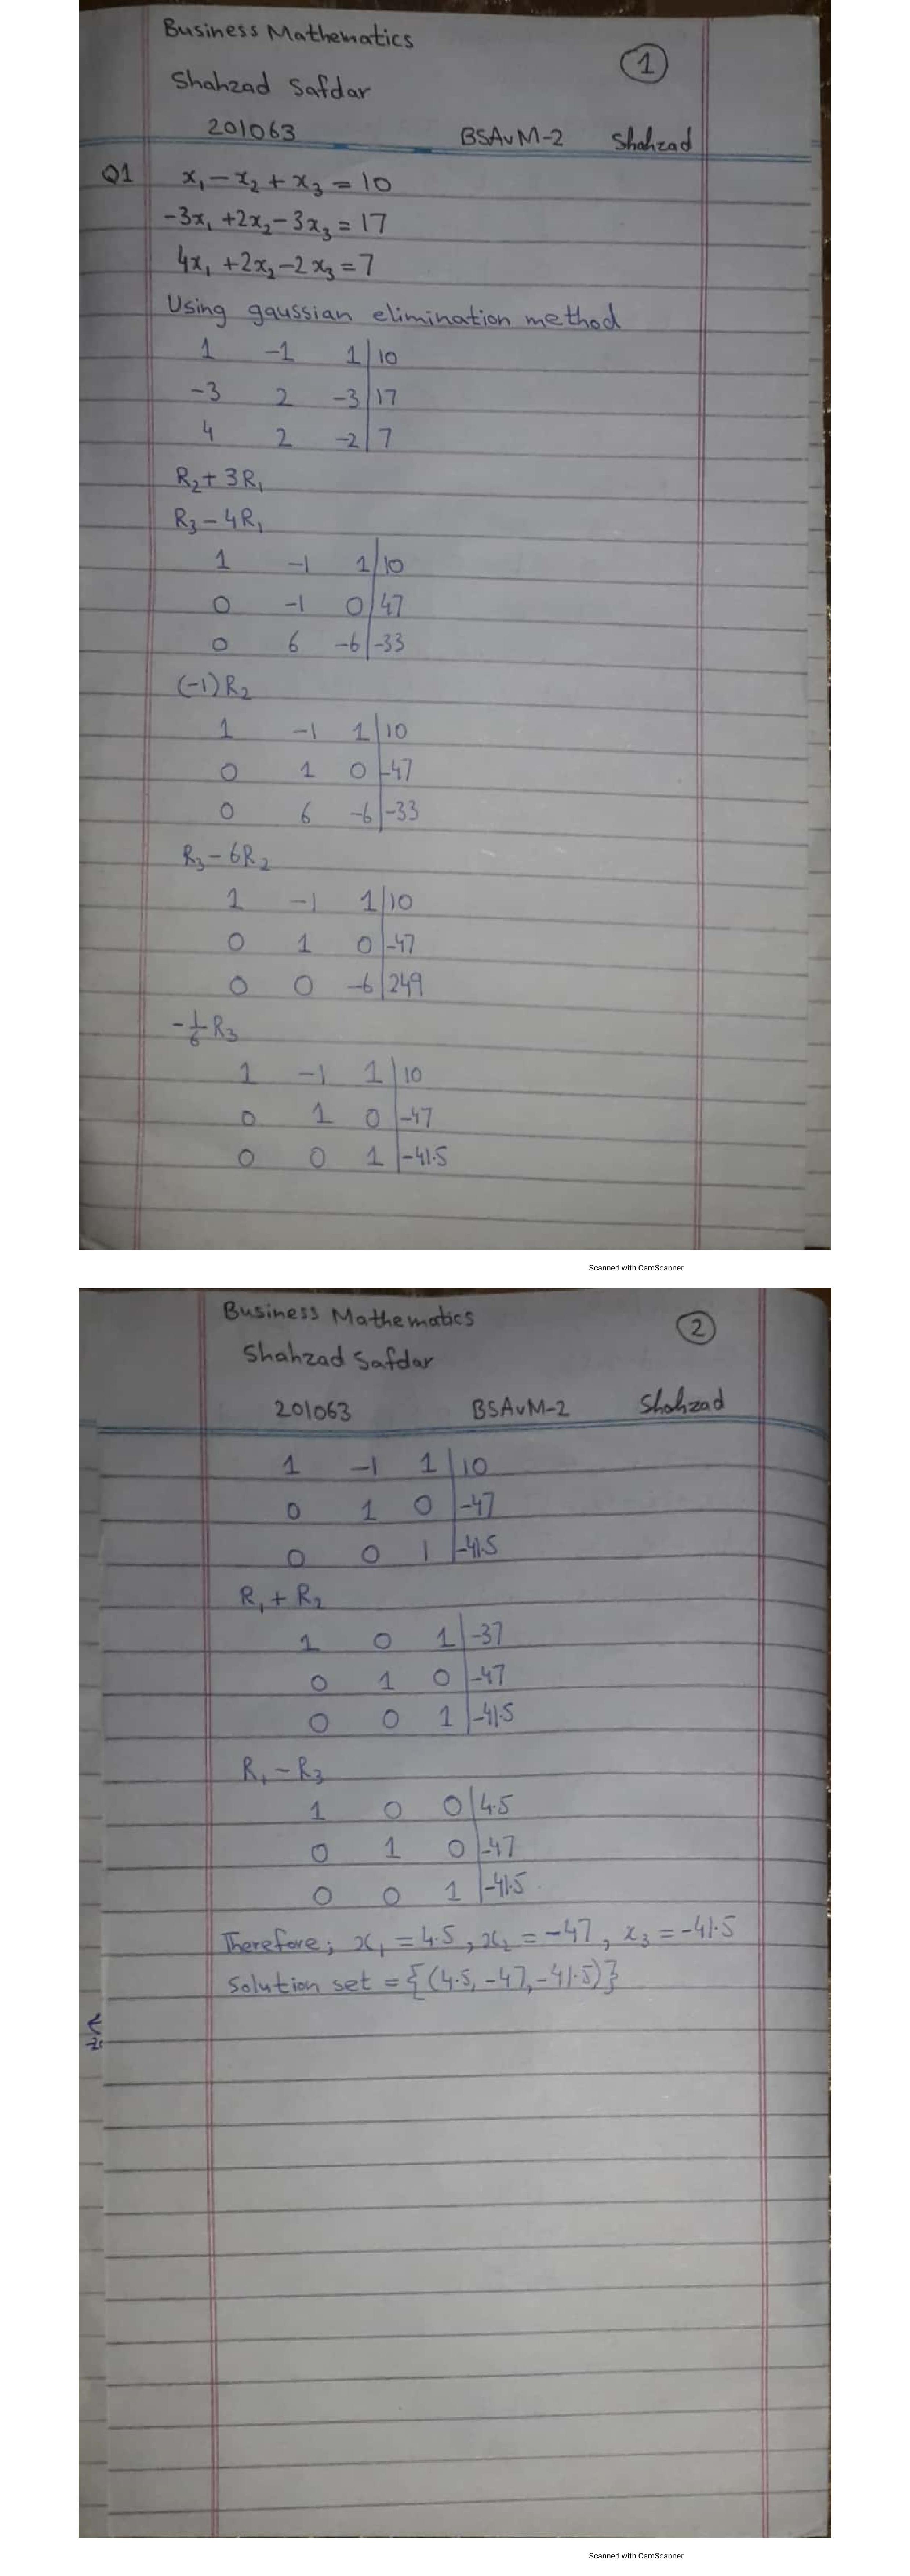 Business Mathematics
1
Shahzad Safdar
201063 BSAvM-2 Shahzad
Q1 x₁ - x₂ + x₃ = 10
-3x₁ + 2x₂ - 3x₃ = 17
4x₁ + 2x₂ - 2x₃ = 7
Using gaussian elimination method
1 -1 1 | 10
-3 2 -3 | 17
4 2 -2 | 7
R₂ + 3R₁
R₃ - 4R₁
1 -1 1 | 10
0 -1 0 | 47
0 6 -6 | -33
(-1)R₂
1 -1 1 | 10
0 1 0 | -47
0 6 -6 | -33
R₃ - 6R₂
1 -1 1 | 10
0 1 0 | -47
0 0 -6 | 249
-1/6 R₃
1 -1 1 | 10
0 1 0 | -47
0 0 1 | -41.5
Scanned with CamScanner
Business Mathematics
2
Shahzad Safdar
201063 BSAvM-2 Shahzad
1 -1 1 | 10
0 1 0 | -47
0 0 1 | -41.5
R₁ + R₂
1 0 1 | -37
0 1 0 | -47
0 0 1 | -41.5
R₁ - R₃
1 0 0 | 4.5
0 1 0 | -47
0 0 1 | -41.5
Therefore; x₁ = 4.5, x₂ = -47, x₃ = -41.5
Solution set = {(4.5, -47, -41.5)}
Scanned with CamScanner